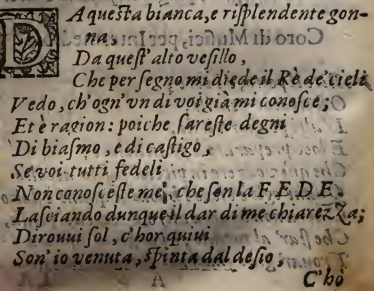 DA questa bianca, e risplendente gon-
na,
Da quest' alto vesillo,
Che per segno mi diede il Rè de' cieli
Vedo, ch'ogn' vn di voi già mi conosce;
Et è ragion: poiche sareste degni
Di biasmo, e di castigo,
Se voi tutti fedeli
Non conosceste me, che son la FEDE.
Lasciando dunque il dar di me chiarezza;
Dirouui sol, c'hor quiui
Son' io venuta, spinta dal desio;
C'hò